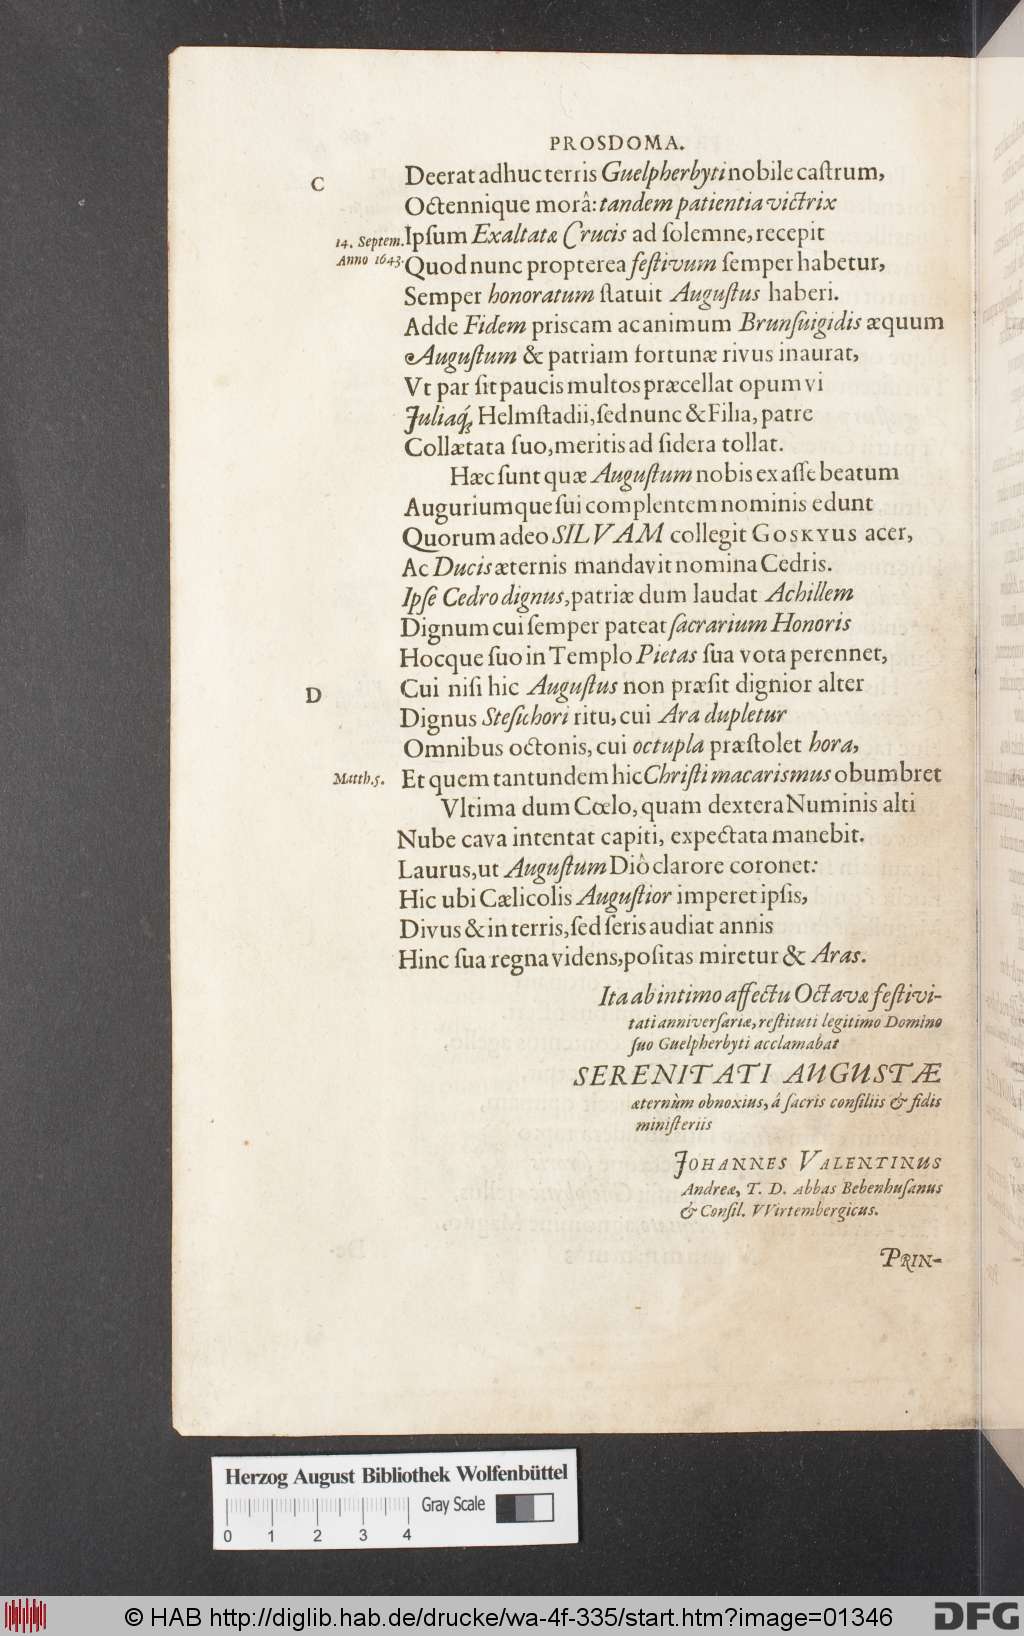 PROSDOMA.
C
Deerat adhuc terris Guelpherbyti nobile caſtrum,
Octennique morâ: tandem patientia victrix
14. Septem. Ipſum Exaltatæ Crucis ad ſolemne, recepit
Anno 1643. Quod nunc propterea feſtivum ſemper habetur,
Semper honoratum ſtatuit Auguſtus haberi.
Adde Fidem priscam ac animum Brunſuigidis æquum
Auguſtum & patriam fortunæ rivus inaurat,
Vt par ſit paucis multos præcellat opum vi
Juliaq́; Helmſtadii, ſed nunc & Filia, patre
Collætata ſuo, meritis ad ſidera tollat.
Hæc ſunt quæ Auguſtum nobis ex aſſe beatum
Auguriumque ſui complentem nominis edunt
Quorum adeo SILVAM collegit GOSKYUS acer,
Ac Ducis æternis mandavit nomina Cedris.
Ipſe Cedro dignus, patriæ dum laudat Achillem
Dignum cui ſemper pateat ſacrarium Honoris
Hocque ſuo in Templo Pietas ſua vota perennet,
D
Cui niſi hic Auguſtus non præſit dignior alter
Dignus Steſichori ritu, cui Ara dupletur
Omnibus octonis, cui octupla præſtolet hora,
Matth. 5. Et quem tantundem hic Chriſti macarismus obumbret
Vltima dum Cœlo, quam dextera Numinis alti
Nube cava intentat capiti, expectata manebit.
Laurus, ut Auguſtum Diô clarore coronet:
Hic ubi Cælicolis Auguſtior imperet ipſis,
Divus & in terris, ſed ſeris audiat annis
Hinc ſua regna videns, poſitas miretur & Aras.
Ita ab intimo affectu Octavæ feſtivi-
tati anniverſariæ, reſtituti legitimo Domino
ſuo Guelpherbyti acclamabat
SERENITATI AUGUSTÆ
æternùm obnoxius, á ſacris conſiliis & fidis
miniſteriis
JOHANNES VALENTINUS
Andreæ, T. D. Abbas Bebenhuſanus
& Conſil. VVirtembergicus.
PRIN-
Herzog August Bibliothek Wolfenbüttel
Gray Scale
0 1 2 3 4
© HAB http://diglib.hab.de/drucke/wa-4f-335/start.htm?image=01346
DFG